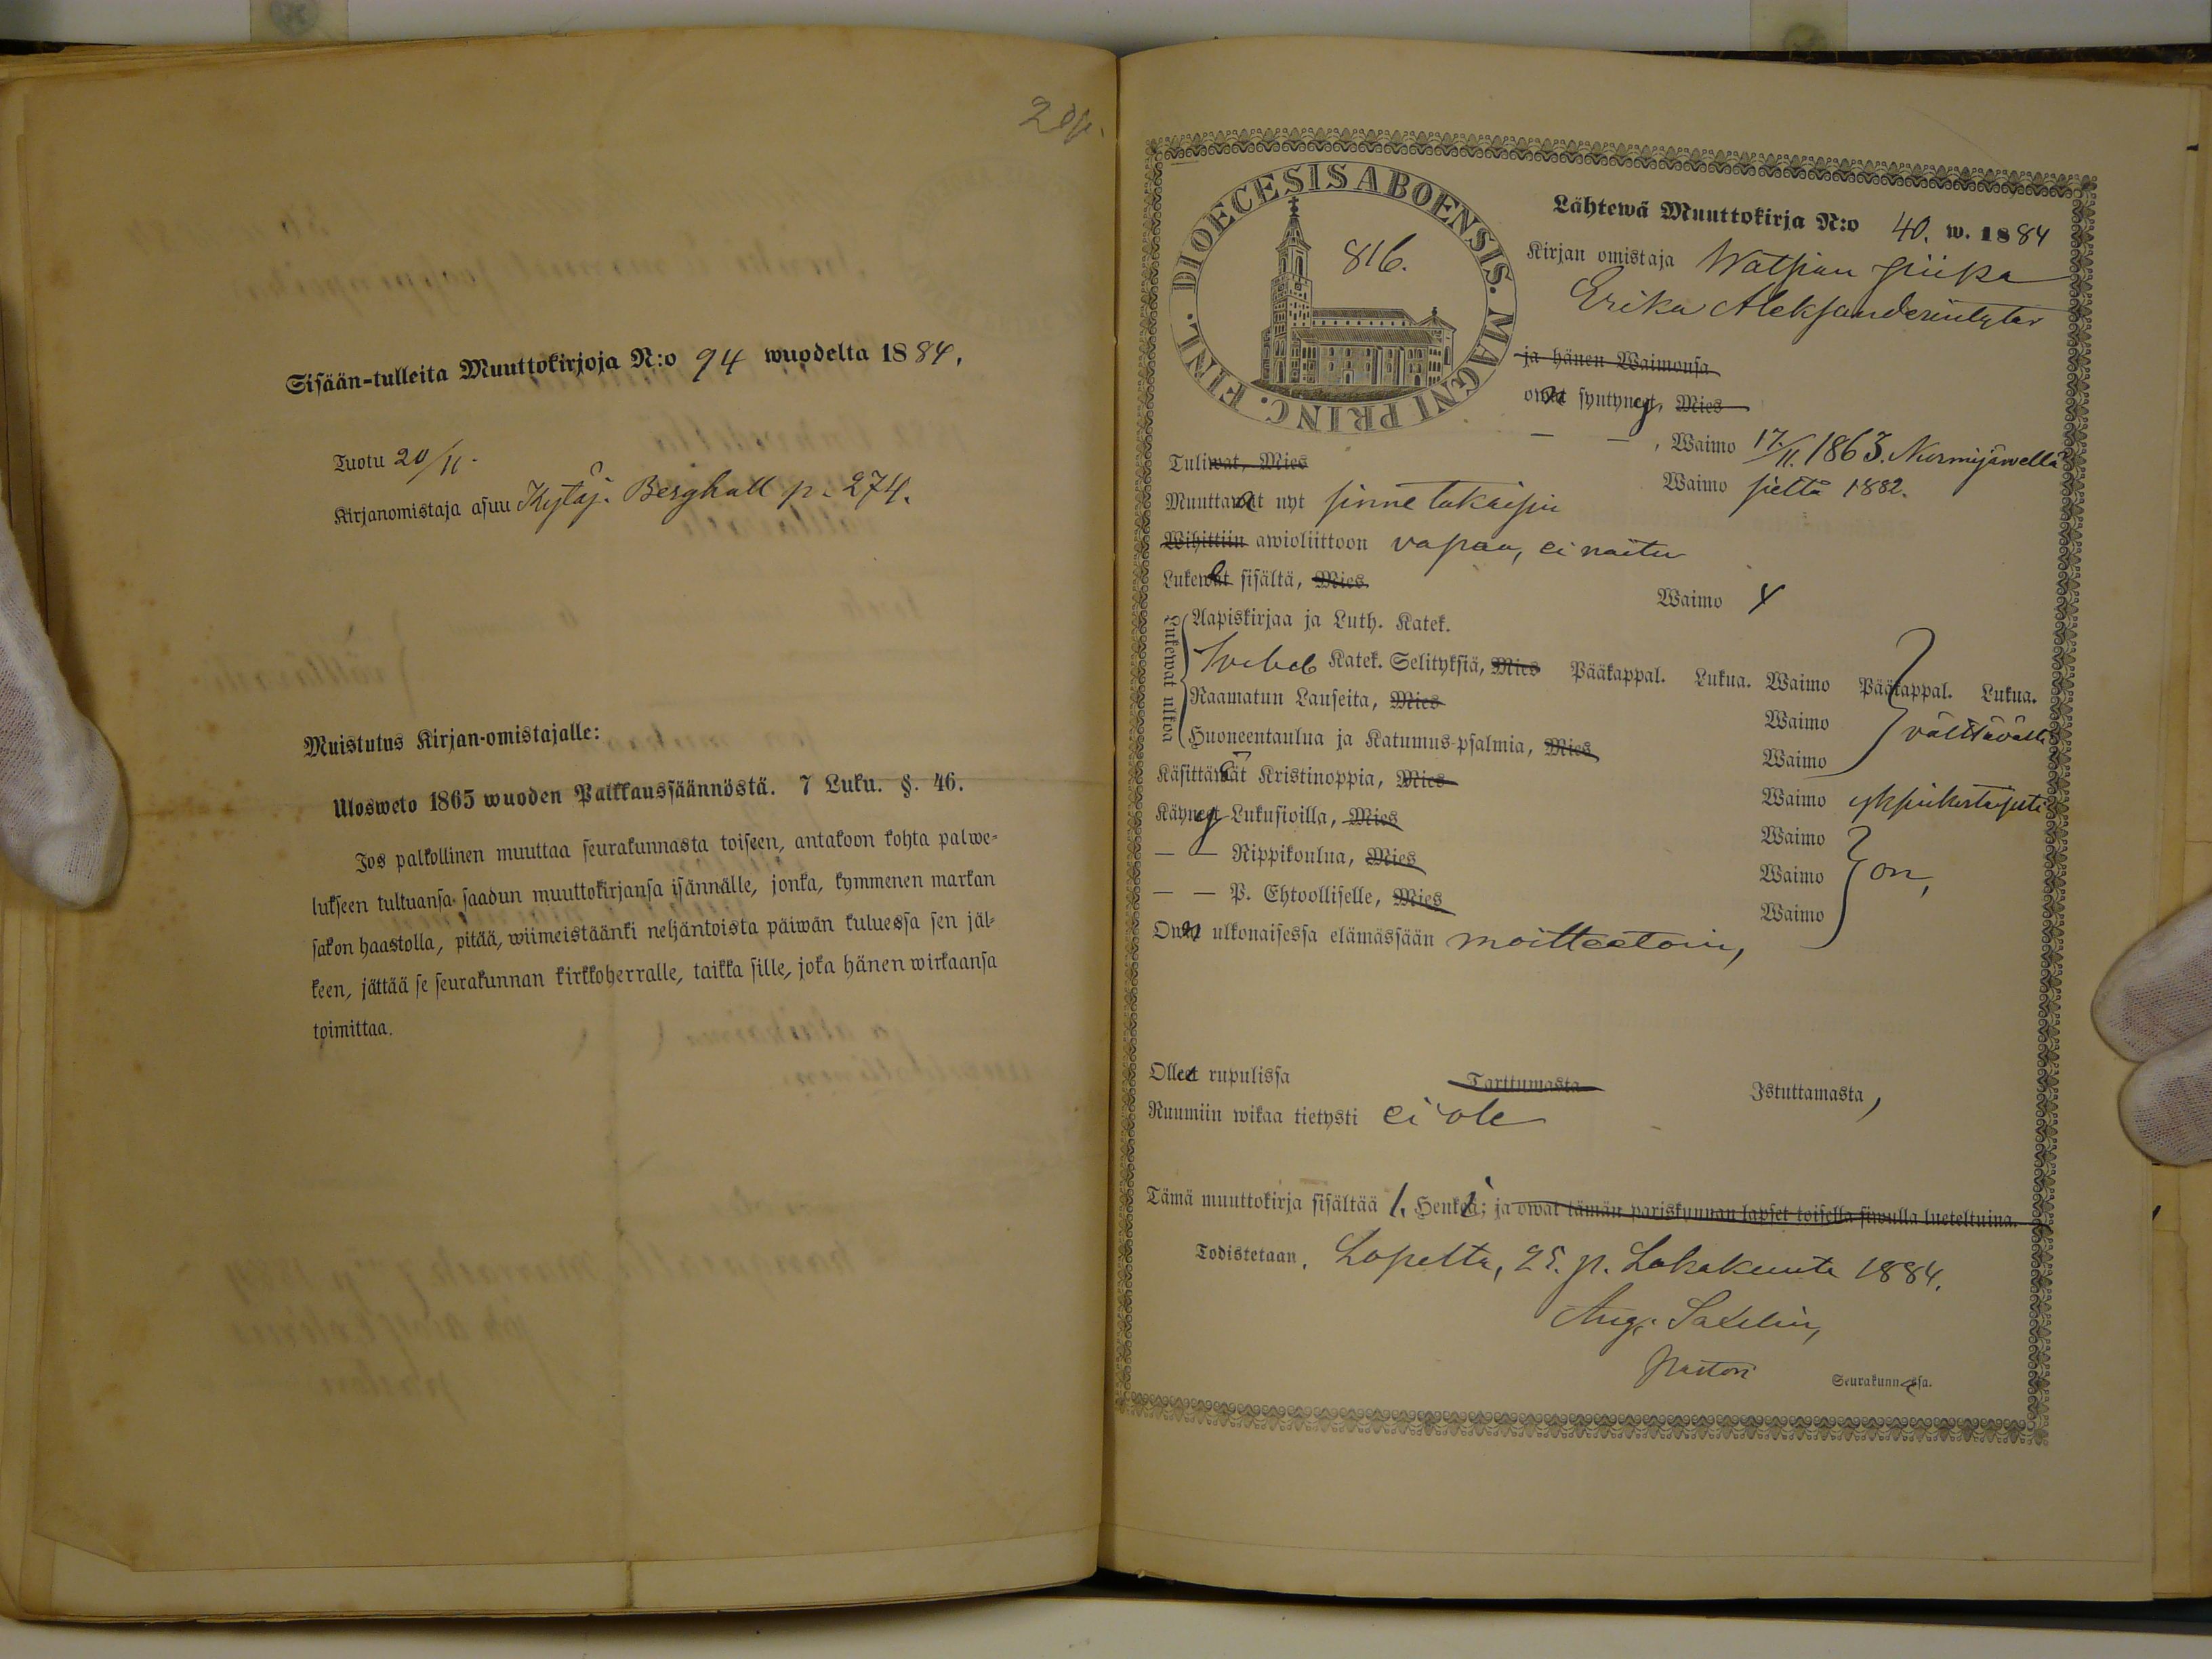 20p.
Sisään-tulleita Muuttokirjoja N:o 94 wuodelta 1884.
Tuotu 20/11.
Kirjanomistaja asuu Kytäj. Berghall p. 274.
Muistutus Kirjan-omistajalle:
Ulosweto 1865 wuoden Palkkaussäännöstä. 7 Luku. §. 46.
Jos palkollinen muuttaa seurakunnasta toiseen, antakoon kohta palwe-
lukseen tultuansa saadun muuttokirjansa isännälle, jonka, kymmenen markan
sakon haastolla, pitää, wiimeistäänki neljäntoista päiwän kuluessa sen jäl-
keen, jättää se seurakunnan kirkkoherralle, taikka sille, joka hänen wirkaansa
toimittaa.
DIOECESIS ABOENSIS. MAGNI PRINC. FINL.
816.
Lähtewä Muuttokirja N:o 40. w. 1884
Kirjan omistaja piika
Erika Aleksanderintytär
ja hänen Waimonsa
owat syntynyt, Mies
— — , Waimo 17/11. 1863. Nurmijärwellä
Tuliwat, Mies Waimo sieltä 1882.
Muuttawat nyt sinne takaisin
Wihittiin awioliittoon vapaa, ei naitu
Lukewat sisältä, Mies Waimo 4
Lukewat ulkoa
Aapiskirjaa ja Luth. Katek.
Sveb Katek. Selityksiä, Mies Pääkappal. Lukua. Waimo Pääkappal. Lukua.
Raamatun Lauseita, Mies Waimo välttävästi
Huoneentaulua ja Katumus-psalmia, Mies Waimo
Käsittäwät Kristinoppia, Mies Waimo yksinkertaisesti
Käyneet Lukusioilla, Mies Waimo
— — Rippikoulua, Mies Waimo on,
— — P. Ehtoolliselle, Mies Waimo
Owat ulkonaisessa elämässään moitteetoin,
Olleet rupulissa Tarttumasta Istuttamasta,
Ruumiin wikaa tietysti ei ole
Tämä muuttokirja sisältää 1. Henkeä; ja owat tämän pariskunnan lapset toisella siwulla lueteltuina.
Todistetaan, Lopelta, 25. p. Lokakuuta 1884.
Aug.
pastori Seurakunnassa.